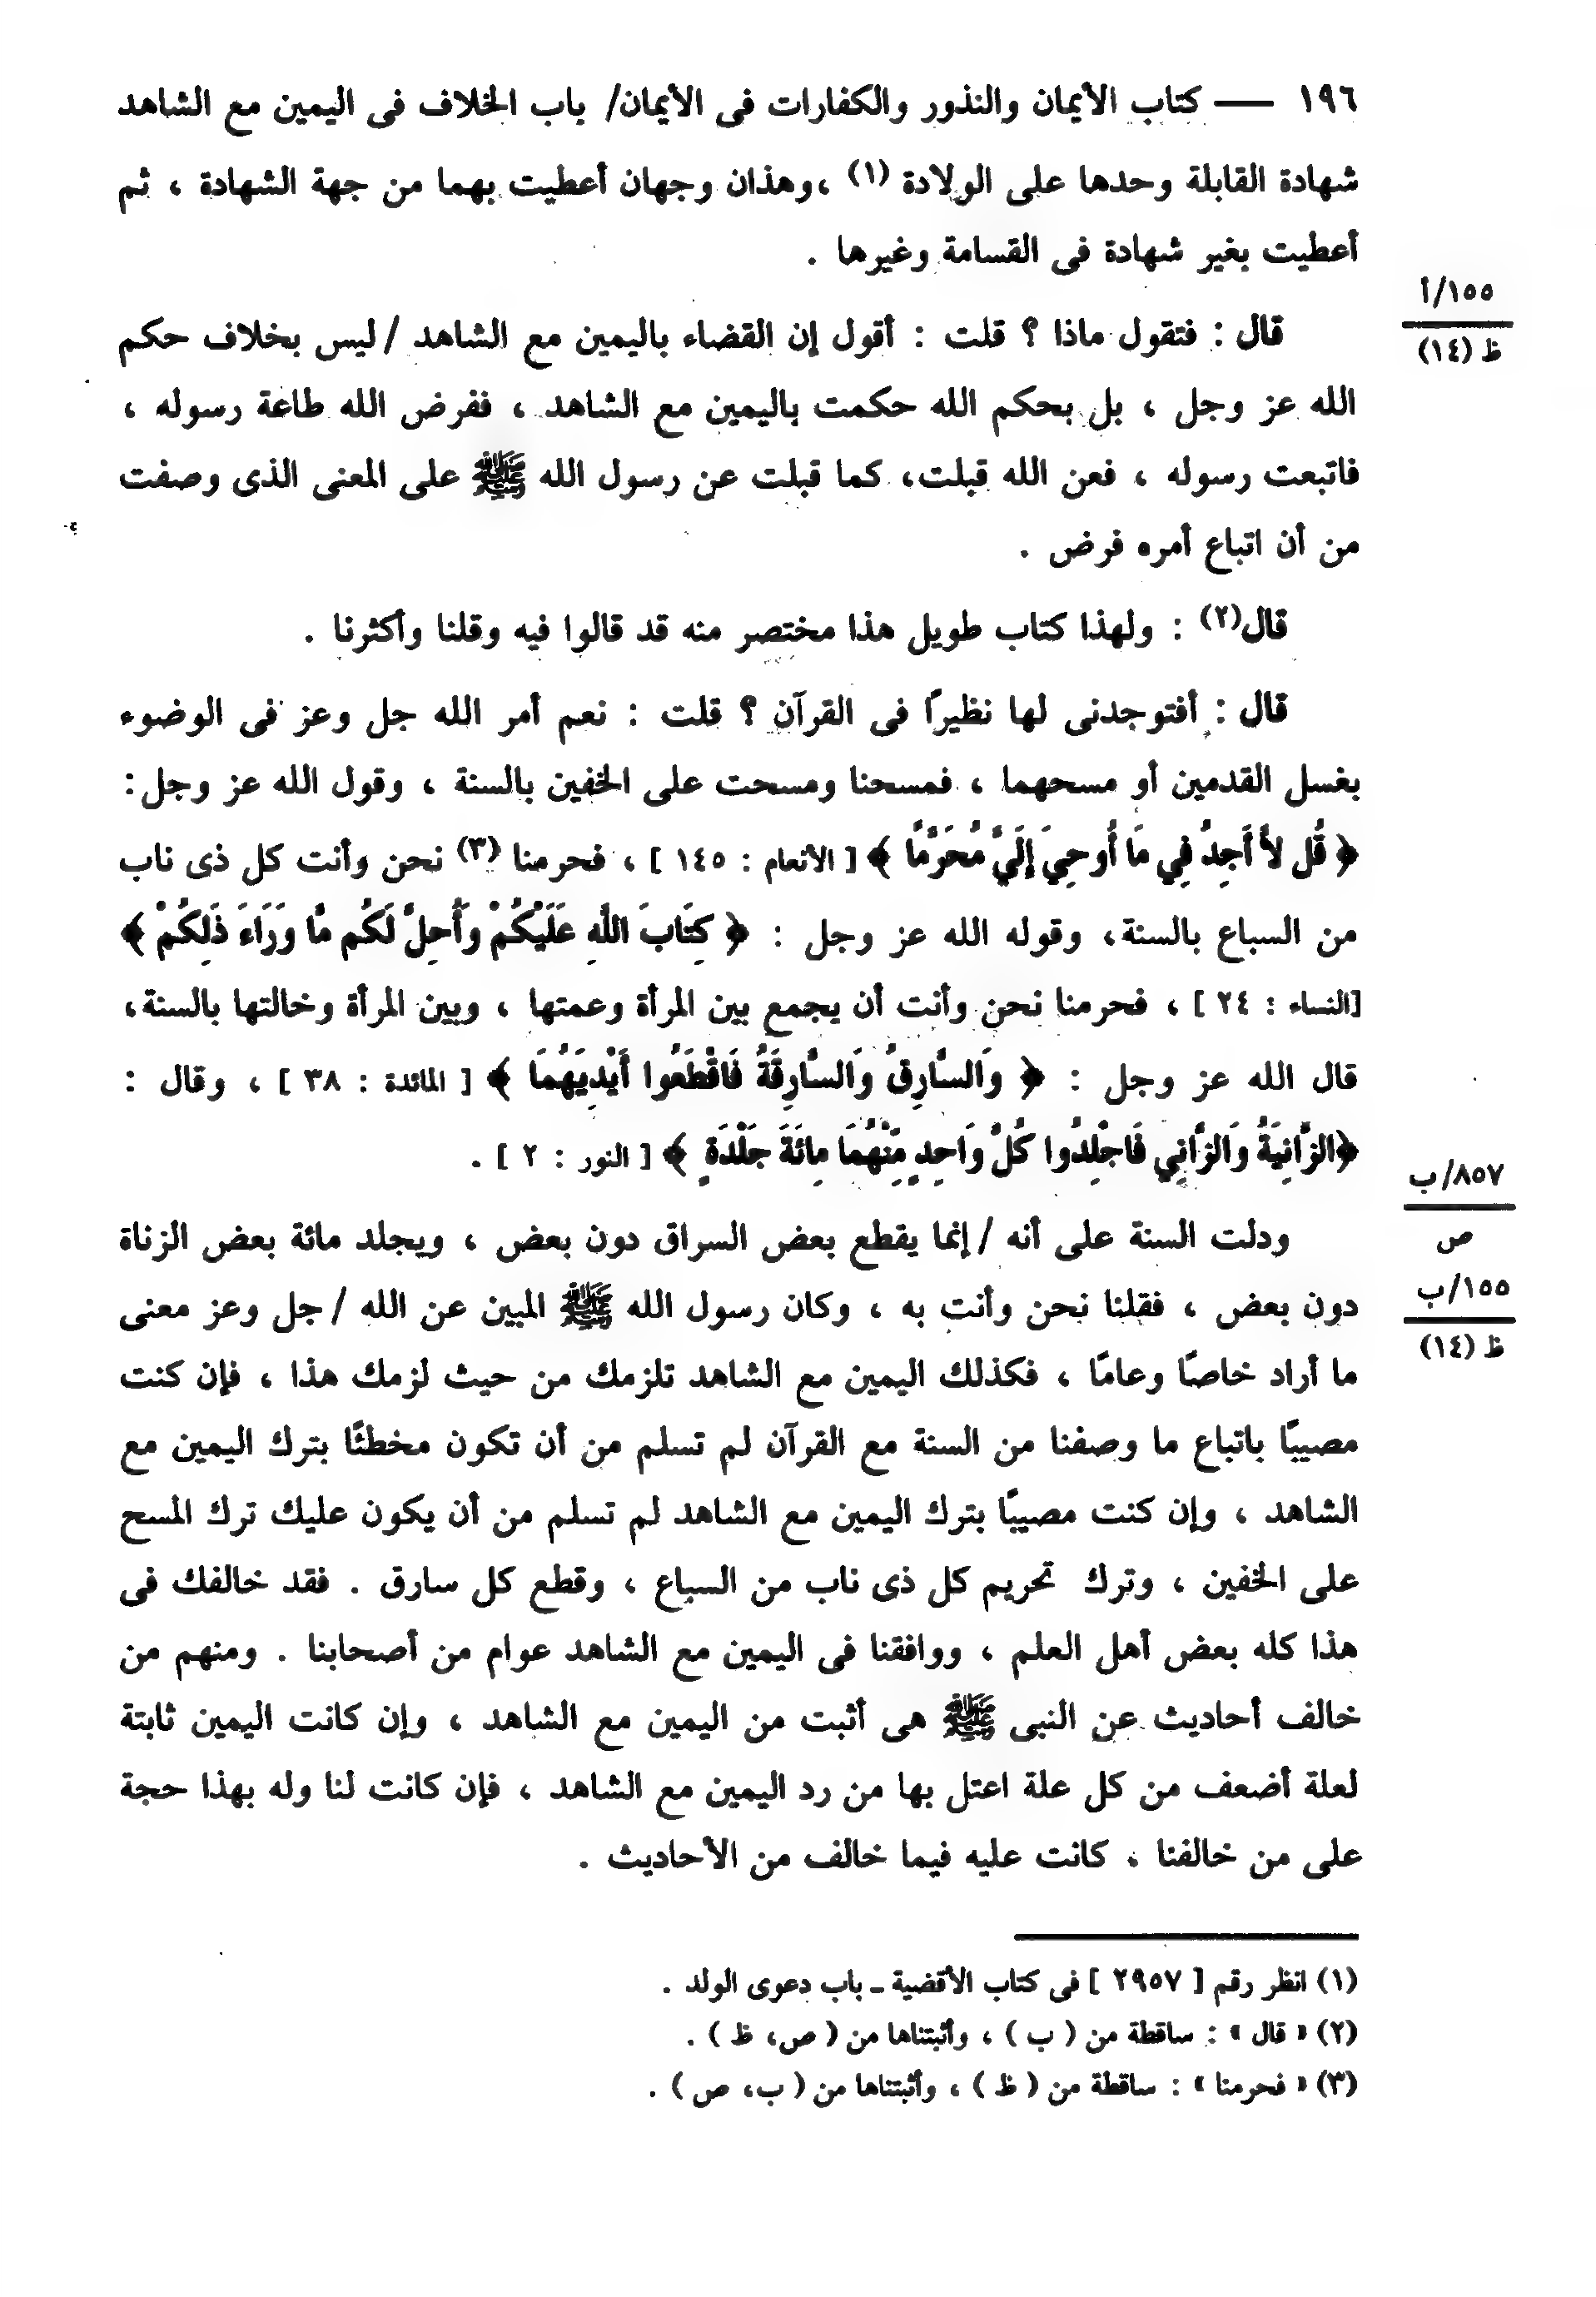 ١٩٦ ــــ كتاب الأيمان والنذور والكفارات فى الأيمان/ باب الخلاف فى اليمين مع الشاهد
شهادة القابلة وحدها على الولادة (١) ،وهذان وجهان أعطيت بهما من جهة الشهادة ، ثم
أعطيت بغير شهادة فى القسامة وغيرها .
١٥٥/أ
ظ (١٤)
قال : فتقول ماذا ؟ قلت : أقول إن القضاء باليمين مع الشاهد / ليس بخلاف حكم
الله عز وجل ، بل بحكم الله حكمت باليمين مع الشاهد ، ففرض الله طاعة رسوله ،
فاتبعت رسوله ، فعن الله قبلت، كما قبلت عن رسول الله ﷺ على المعنى الذى وصفت
من أن اتباع أمره فرض .
قال(٢) : ولهذا كتاب طويل هذا مختصر منه قد قالوا فيه وقلنا وأكثرنا .
قال : أفتوجدنى لها نظيرًا فى القرآن ؟ قلت : نعم أمر الله جل وعز فى الوضوء
بغسل القدمين أو مسحهما ، فمسحنا ومسحت على الخفين بالسنة ، وقول الله عز وجل:
﴿ قُل لاَّ أَجِدُ فِي مَا أُوحِيَ إِلَيَّ مُحَرَّمًا ﴾ [ الأنعام : ١٤٥ ] ، فحرمنا (٣) نحن وأنت كل ذى ناب
من السباع بالسنة، وقوله الله عز وجل : ﴿ كِتَابَ اللَّهِ عَلَيْكُمْ وَأُحِلَّ لَكُم مَّا وَرَاءَ ذَلِكُمْ ﴾
[النساء : ٢٤ ] ، فحرمنا نحن وأنت أن يجمع بين المرأة وعمتها ، وبين المرأة وخالتها بالسنة،
قال الله عز وجل : ﴿ وَالسَّارِقُ وَالسَّارِقَةُ فَاقْطَعُوا أَيْدِيَهُمَا ﴾ [ المائدة : ٣٨ ] ، وقال :
﴿الزَّانِيَةُ وَالزَّانِي فَاجْلِدُوا كُلَّ وَاحِدٍ مِّنْهُمَا مِائَةَ جَلْدَةٍ ﴾ [ النور : ٢ ] .
٨٥٧/ب
ص
ودلت السنة على أنه / إنما يقطع بعض السراق دون بعض ، ويجلد مائة بعض الزناة
١٥٥/ب
ظ (١٤)
دون بعض ، فقلنا نحن وأنت به ، وكان رسول الله ﷺ المبين عن الله / جل وعز معنى
ما أراد خاصًا وعامًا ، فكذلك اليمين مع الشاهد تلزمك من حيث لزمك هذا ، فإن كنت
مصيبًا باتباع ما وصفنا من السنة مع القرآن لم تسلم من أن تكون مخطئًا بترك اليمين مع
الشاهد ، وإن كنت مصيبًا بترك اليمين مع الشاهد لم تسلم من أن يكون عليك ترك المسح
على الخفين ، وترك تحريم كل ذى ناب من السباع ، وقطع كل سارق . فقد خالفك فى
هذا كله بعض أهل العلم ، ووافقنا فى اليمين مع الشاهد عوام من أصحابنا . ومنهم من
خالف أحاديث عن النبى ﷺ هى أثبت من اليمين مع الشاهد ، وإن كانت اليمين ثابتة
لعلة أضعف من كل علة اعتل بها من رد اليمين مع الشاهد ، فإن كانت لنا وله بهذا حجة
على من خالفنا ، كانت عليه فيما خالف من الأحاديث .
(١) انظر رقم [ ٢٩٥٧ ] فى كتاب الأقضية ـ باب دعوى الولد .
(٢) « قال » : ساقطة من ( ب ) ، وأثبتناها من ( ص، ظ ) .
(٣) « فحرمنا » : ساقطة من ( ظ ) ، وأثبتناها من ( ب، ص ) .